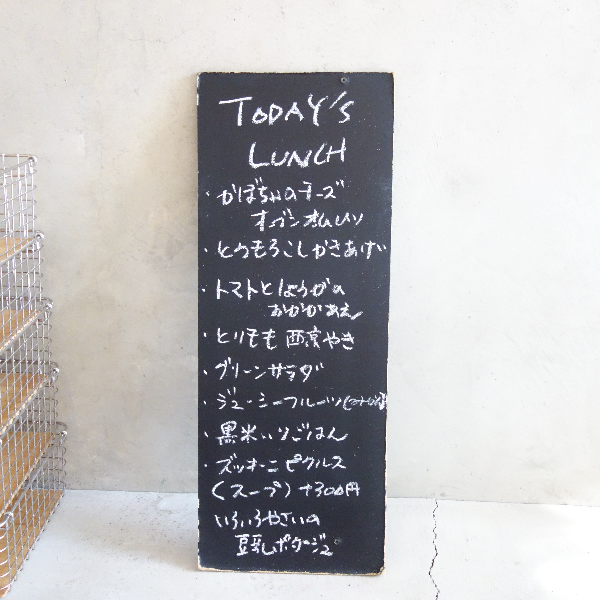 TODAY'S
LUNCH
・かぼちゃのチーズ
オーブンオムレツ
・とうもろこしかきあげ
・トマトとしょうがの
おかかあえ
・とりもも 西京やき
・グリーンサラダ
・ジューシーフルーツ
・黒米いりごはん
・ズッキーニピクルス
(スープ)+300円
いろいろやさいの
豆乳ポタージュ